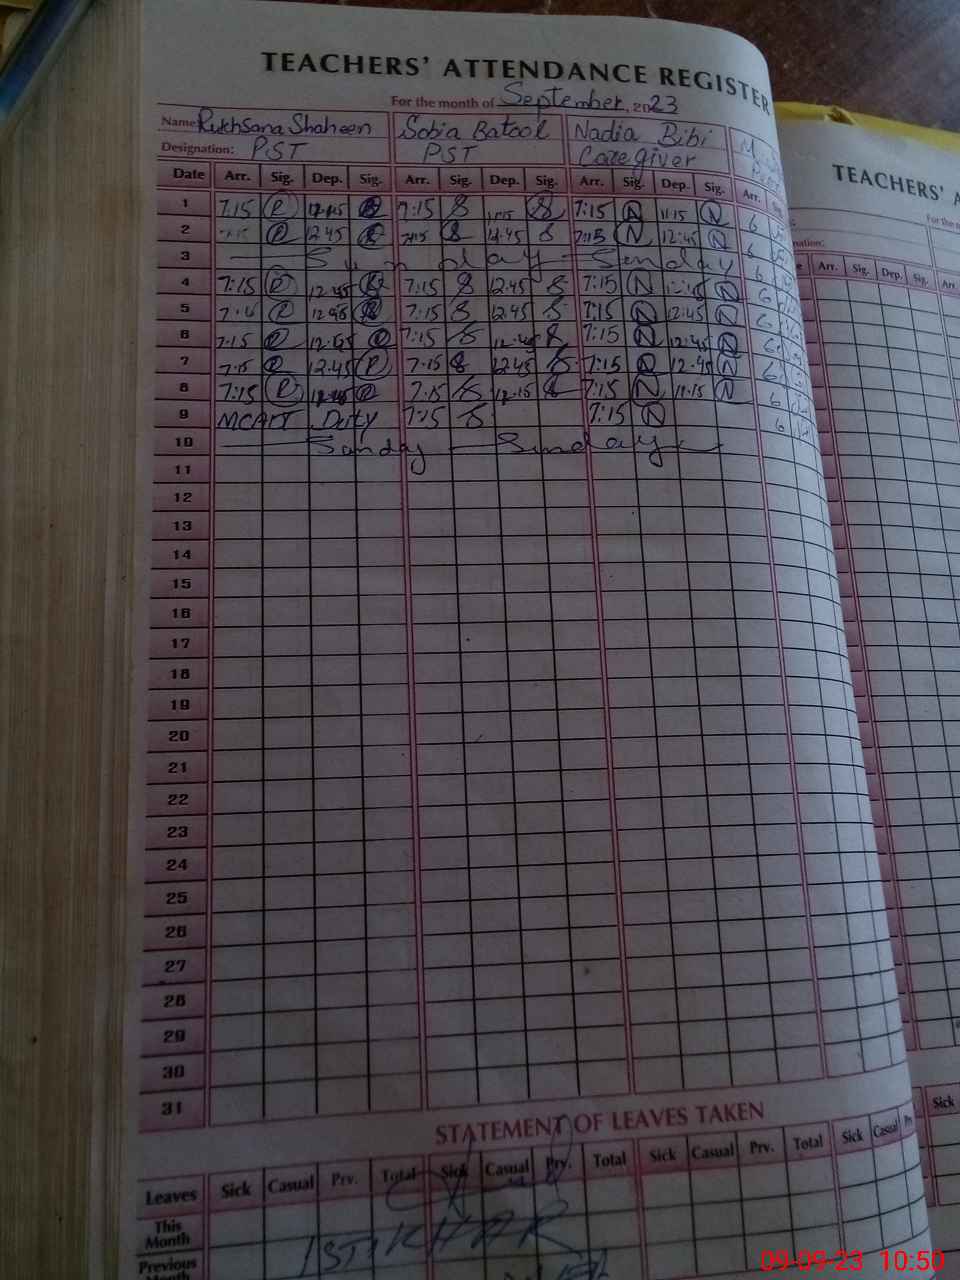 TEACHERS' ATTENDANCE REGISTER
For the month of September, 2023
Name: Rukhsana Shaheen Sobia Batool Nadia Bibi
Designation: PST PST Caregiver
Date Arr. Sig. Dep. Sig. Arr. Sig. Dep. Sig. Arr. Sig. Dep. Sig. Arr.
1 7:15 R 7:15 S S 7:15 N 11:15 N 6
2 R 12:45 R 7:15 S 12:45 S 7:15 N 12:45 N 6
3 Sunday Sunday 6
4 7:15 R 12:45 R 7:15 S 12:45 S 7:15 N N 6
5 R 12:45 R 7:15 S 12:45 S 7:15 N 12:45 N 6
6 7:15 R R 7:15 S S 7:15 N 12:45 N 6
7 7:15 R 12:45 R 7:15 S 12:45 S 7:15 N 12:45 N 6
8 7:15 R R 7:15 S S 7:15 N 11:15 N 6
9 Duty 7:15 S 7:15 N 6
10 Sunday Sunday
11
12
13
14
15
16
17
18
19
20
21
22
23
24
25
26
27
28
29
30
31
STATEMENT OF LEAVES TAKEN
Leaves Sick Casual Prv. Total Sick Casual Prv. Total Sick Casual Prv. Total Sick Casual
This Month
Previous Month
TEACHERS' A
Arr. Sig. Dep. Sig.
Sick
09-09-23 10:50